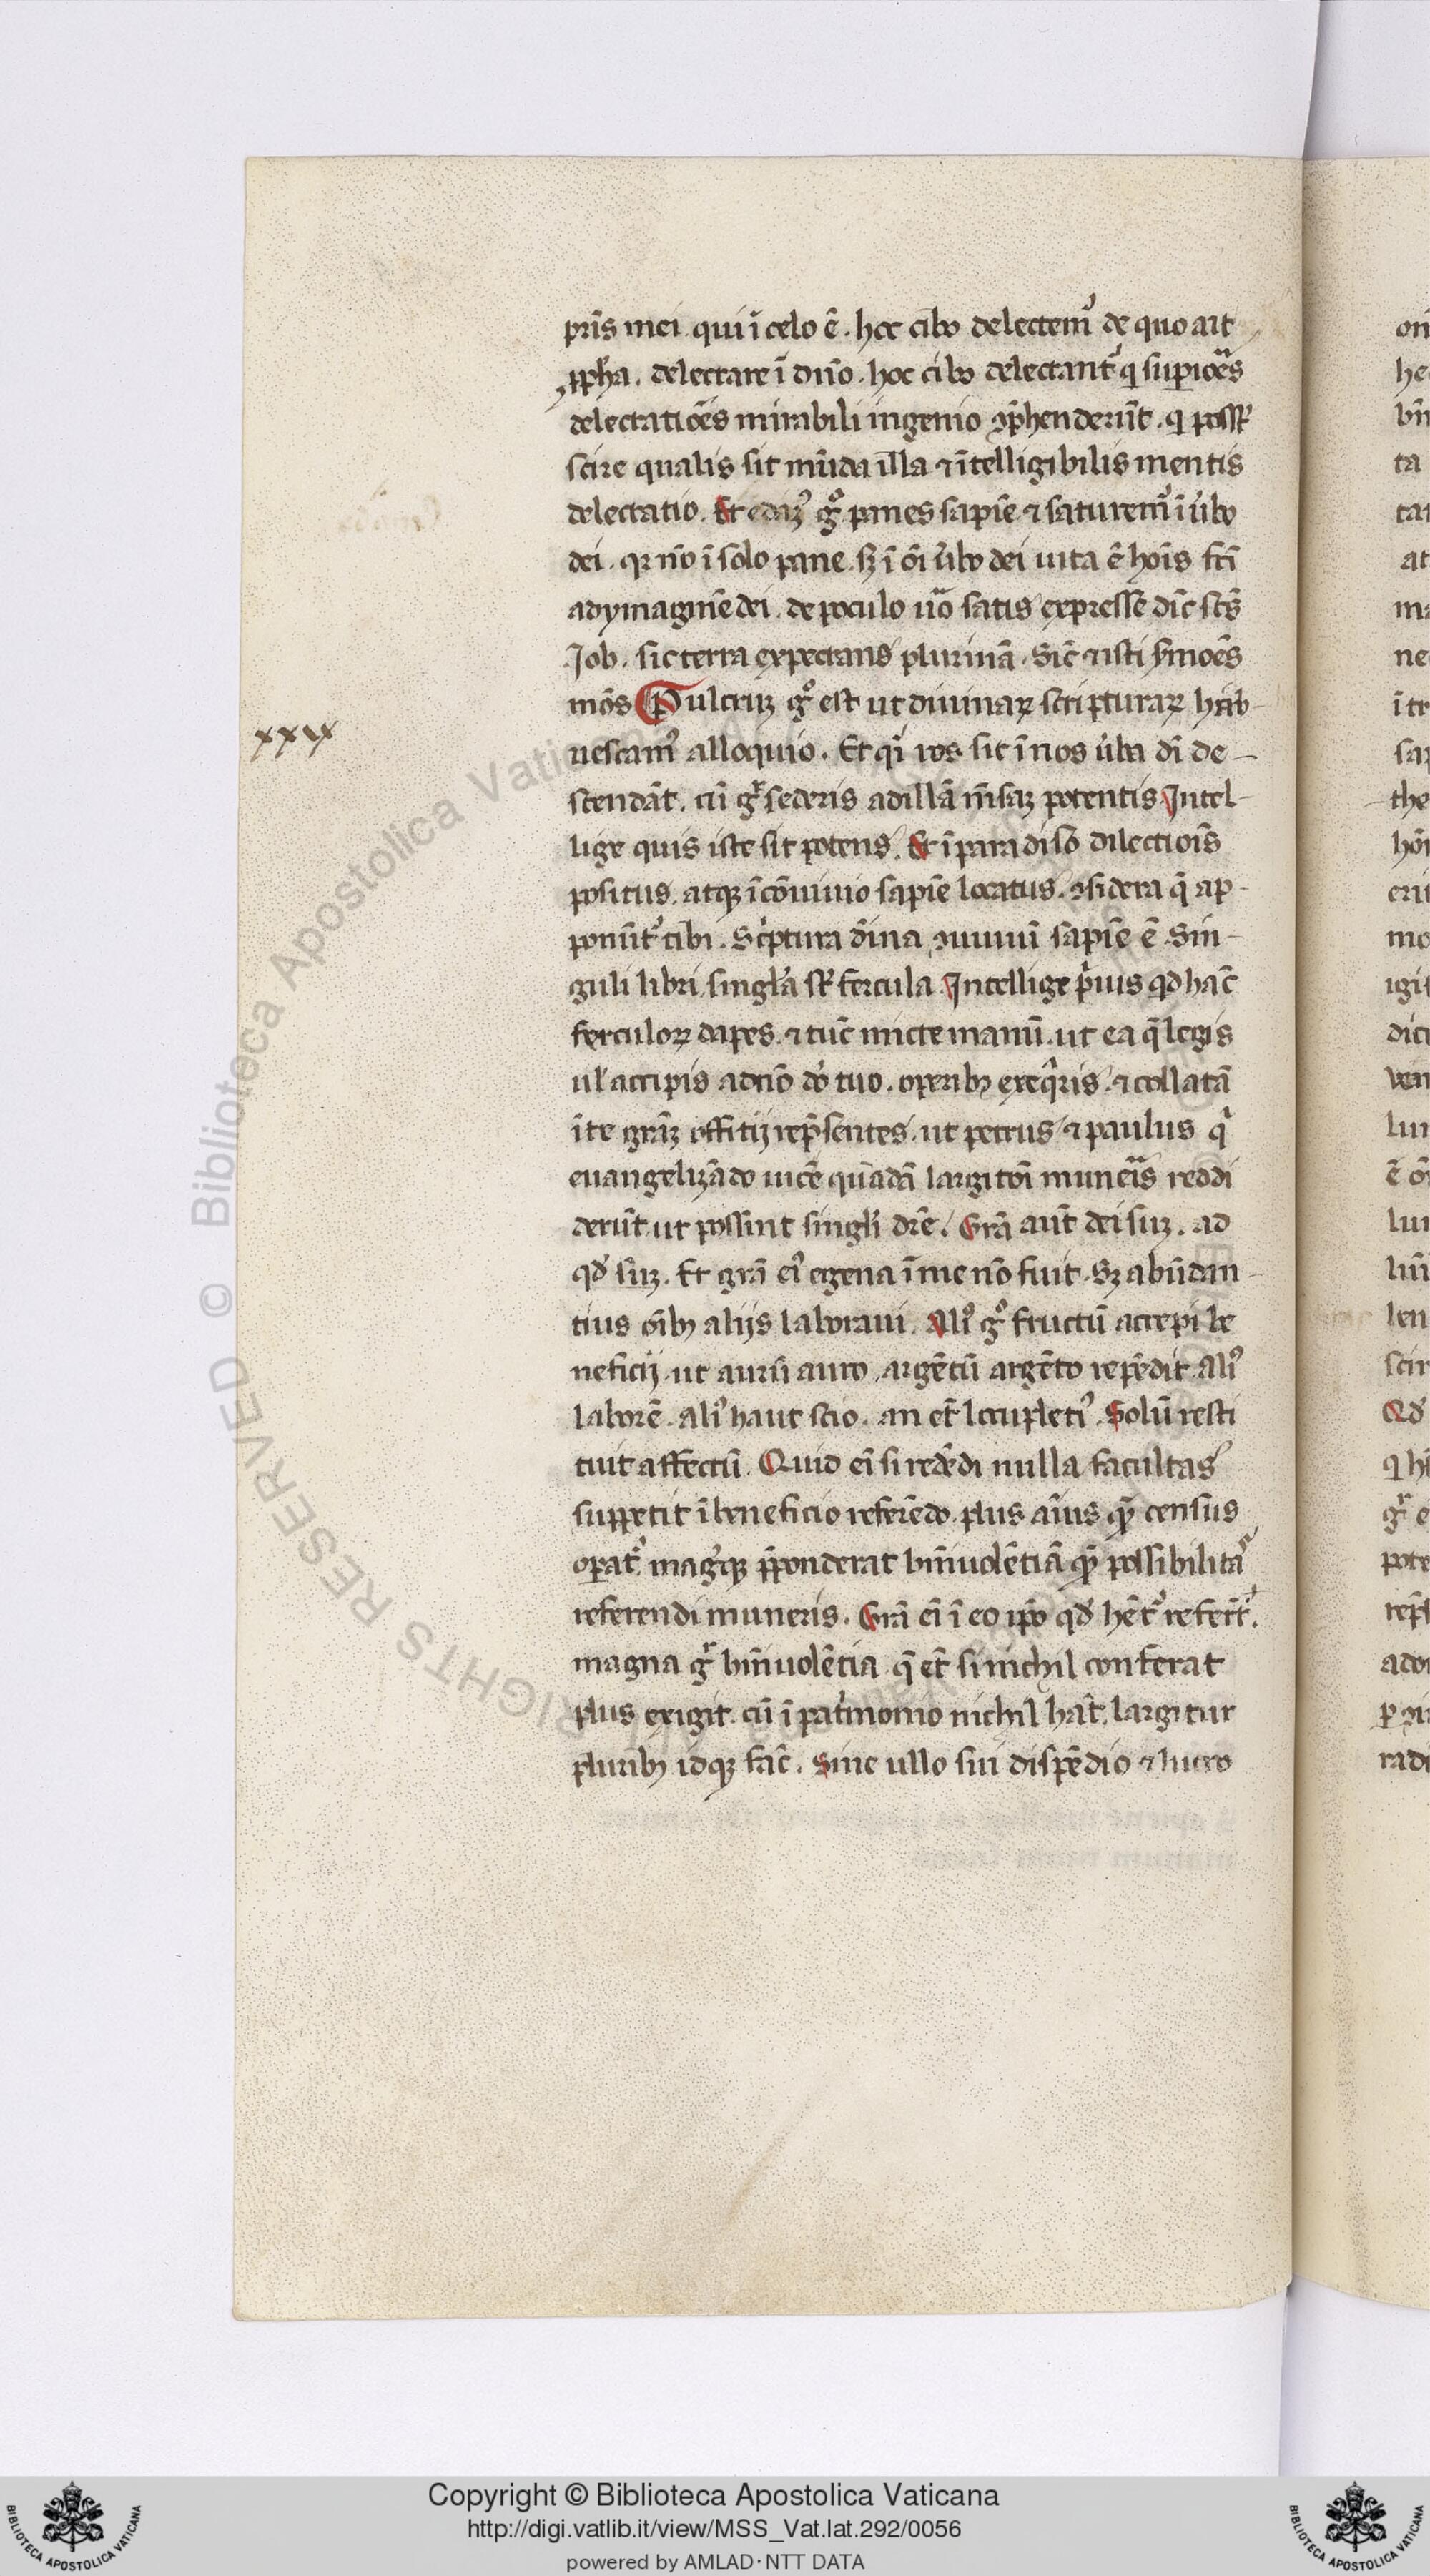 pr̄is mei qui ī celo ē . hoc cibo delectemꝰ de quo ait
ꝓph̄a . delectare ī dn̄o . hoc cibo delectant᷑ q̄ supioēs
delectatiōēs mirabili ingenio ꝯp̄henderūt . q̄
scire qualis sit mūda illa ⁊ ītelligibilis mentis
delectatio . Et edamꝰ gͦ panes sapīe ⁊ saturemꝰ ī ūbo
dei . qr nō ī solo pane . sꝫ ī oī ūbo dei uita ē hoīs fc̄i
ad ymaginē dei . de poculo ūo satis expresse dic̄ scs̄
Job . sic terra expectans pluuiā . Sic̄ ⁊ isti ẜmoēs
mōs Pulcrūꝫ gͦ est ut diuinaꝝ scripturaꝝ
xxix
uescamꝰ alloquio . Et qͥ ros sit ī nos ūba dī de-
scendāt . cū gͦ sederis ad illā mēsaꝫ potentis Intel-
lige quis iste sit potens . Et ī paradiso dilectiois̄
positus . atqꝫ ī cōuiuio sapīe locatus . ꝯsidera q̄ ap-
ponūt᷑ tibi . Sc̄ptura dīna ꝯuiuiū sapīe ē . Sin-
guli libri singl̄a st̄ fercula . Intellige pͥus qd̄ hāc
ferculoꝝ dapes . ⁊ tūc micte manū . ut ea q̄ legis
ul̄ accipis a dn̄o dō tuo . operibꝫ exeqͥris . ⁊ collatā
ī te grāꝫ offitij rep̄sentes . ut petrus ⁊ paulus qͥ
euangelizādo uicē quādā largitoī munēis reddi
derūt ut possint singl̄i dr̄e . Grā aūt dei suꝫ . ad
qd̄ suꝫ . Et grā eiꝰ egena ī me nō fuit . Sꝫ abūdan-
tius oībꝫ alijs laboraui . Aliꝰ gͦ fructū accepi be
neficij . ut aurū auro . argētū argēto repēdit . aliꝰ
laborē . aliꝰ haut scio . an et̄ locupletiꝰ . Solū resti
tuit affectū . Quid ei si redēdi nulla facultas
suppetit ī beneficio referēdo . plus aīus qͣꝫ census
opat᷑ . magꝭqꝫ p̄ponderat bn̄iuolētiā qͣꝫ possibilitā
referendi muneris . Grā ei ī eo ip̄o qd̄ hēt᷑ refert᷑ .
magna gͦ bn̄iuolētia q̄ et̄ si nichil conferat
plus exigit . cū ī pat̄monio nichil hāt . largitur
pluribꝫ idqꝫ fāc . Sine ullo sui dispēdio ⁊ lucro
Copyright © Biblioteca Apostolica Vaticana
http://digi.vatlib.it/view/MSS_Vat.lat.292/0056
powered by AMLAD·NTT DATA